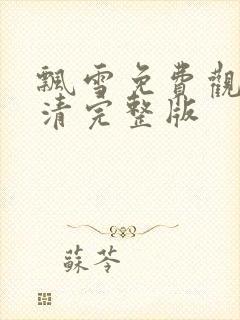 飄雪免費觀
清完整版
蘇苓